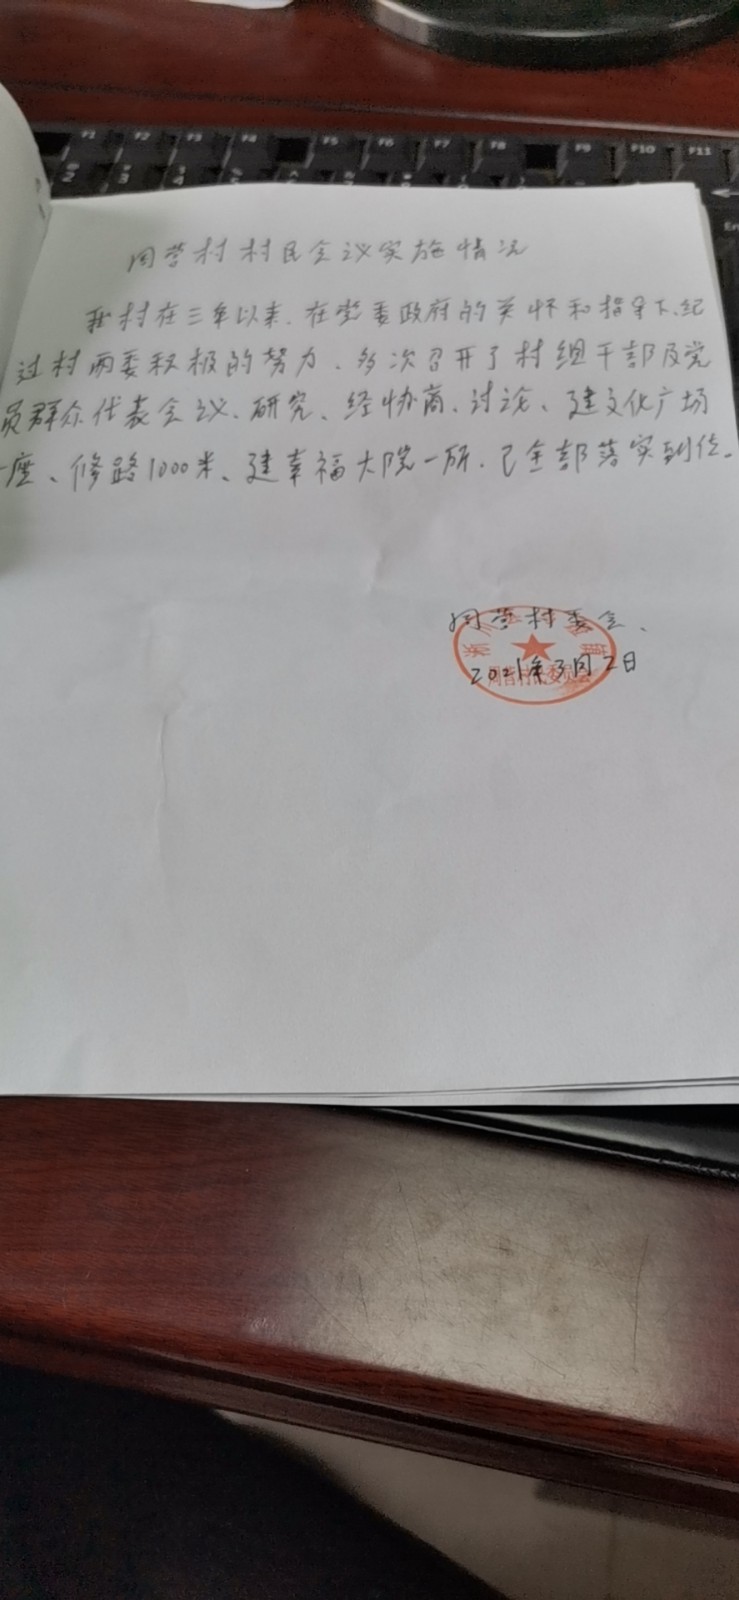 周营村村民会议实施情况
我村在三年以来、在党委政府的关怀和指导下、纪
过村两委积极的努力、多次召开了村组干部及党
员群众代表会议、研究、经协商、讨论、建文化广场
一座、修路1000米、建幸福大院一所、已全部落实到位。
周营村委会、
2021年3月2日